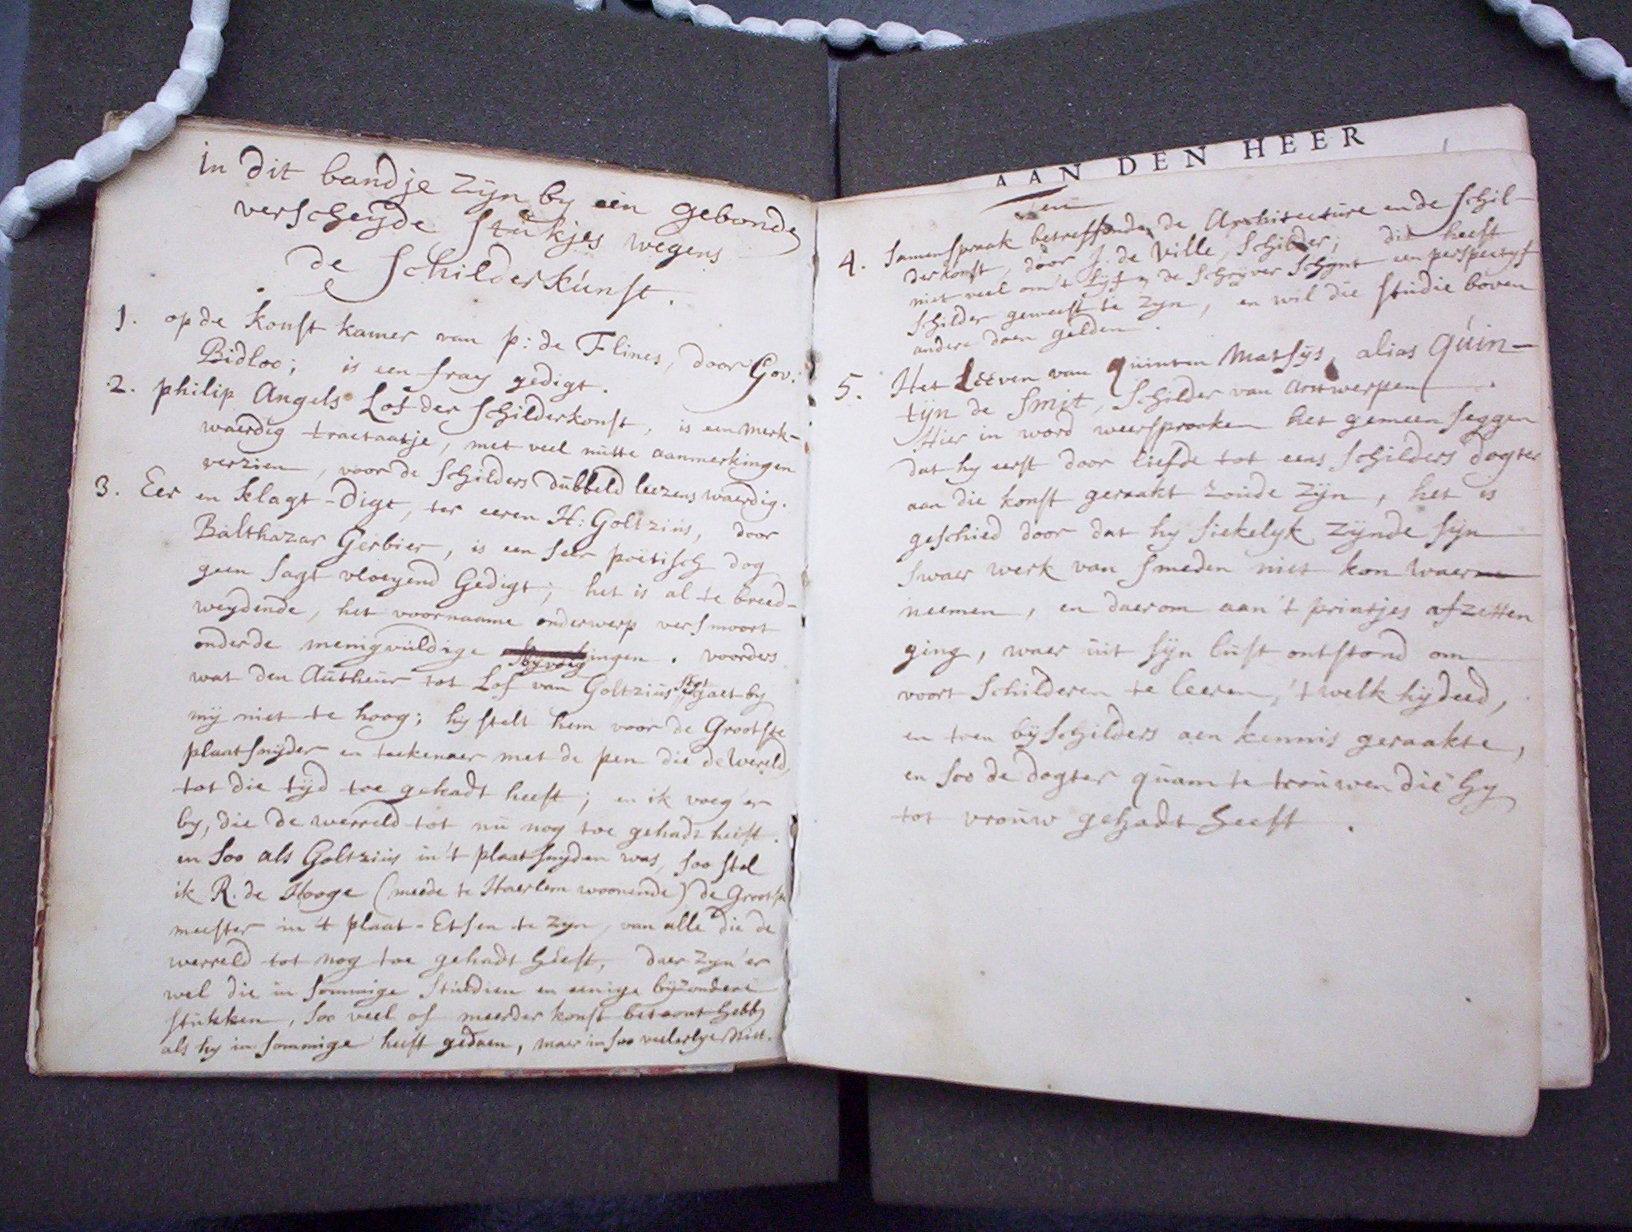 in dit bandje zijn by een gebonde
verscheyde stukjes wegens
de schilderkunst.
1. op de konst kamer van p: de Flines, door Gov:
Bidloo; is een fray gedigt.
2. philip Angels Lof der schilderkonst, is een merk-
waerdig tractaatje, met veel nutte aanmerkingen
verzien, voor de schilders dubbeld leezens waerdig.
3. Eer en klagt-Digt, ter eeren H: Goltzius, door
Balthazar Gerbier, is een seer poëtisch dog
geen sagt vloeyend Gedigt; het is al te breed-
weydende, het voornaame onderwerp versmoort
onder de menigvuldige byvoegingen. voorders
wat den Autheur tot Lof van Goltzius segt gaet by
mij niet te hoog; hy stelt hem voor de Grootste
plaatsnijder en teekenaer met de pen die de wereld,
tot die tijd toe gehadt heeft; en ik voeg'er
by, die de werreld tot nu nog toe gehadt heeft.
en soo als Goltzius in't plaatsnyden was, soo stel
ik R. de Hooge (meede te Haerlem woonende) de Grootste
meester in 't plaat-Etsen te zyn, van alle die de
werreld tot nog toe gehadt heeft, daer zyn'er
wel die in sommige studien en eenige byzondere
stukken, soo veel of meerder konst betoont hebb
als hy in sommige heeft gedaen, maer in soo veelerlye niet.
AAN DEN HEER
4. Samenspraak betreffende de Architecture en de schil-
derkonst, door J. de Ville, schilder; dit heeft
niet veel om't lijf, de schrijver schynt een perspectyf
schilder geweest te zyn, en wil die studie boven
andere doen gelden.
5. Het Leeven van Quinten Matsijs, alias Quin-
tijn de Smit, schilder van Antwerpen.
Hier in word weersprooken het gemeen seggen
dat hy eerst door liefde tot eens schilders dogter
aan die konst geraakt zoude zijn, het is
geschied door dat hy siekelyk zijnde sijn
swaer werk van smeden niet kon waer
neemen, en daerom aan't printjes afzetten
ging, waer uit sijn lust ontstond om
voort schilderen te leeren, 't welk hij deed,
en toen bij schilders aen kennis geraakte,
en soo de dogter quam te trouwen die hy
tot vrouw gehadt heeft.